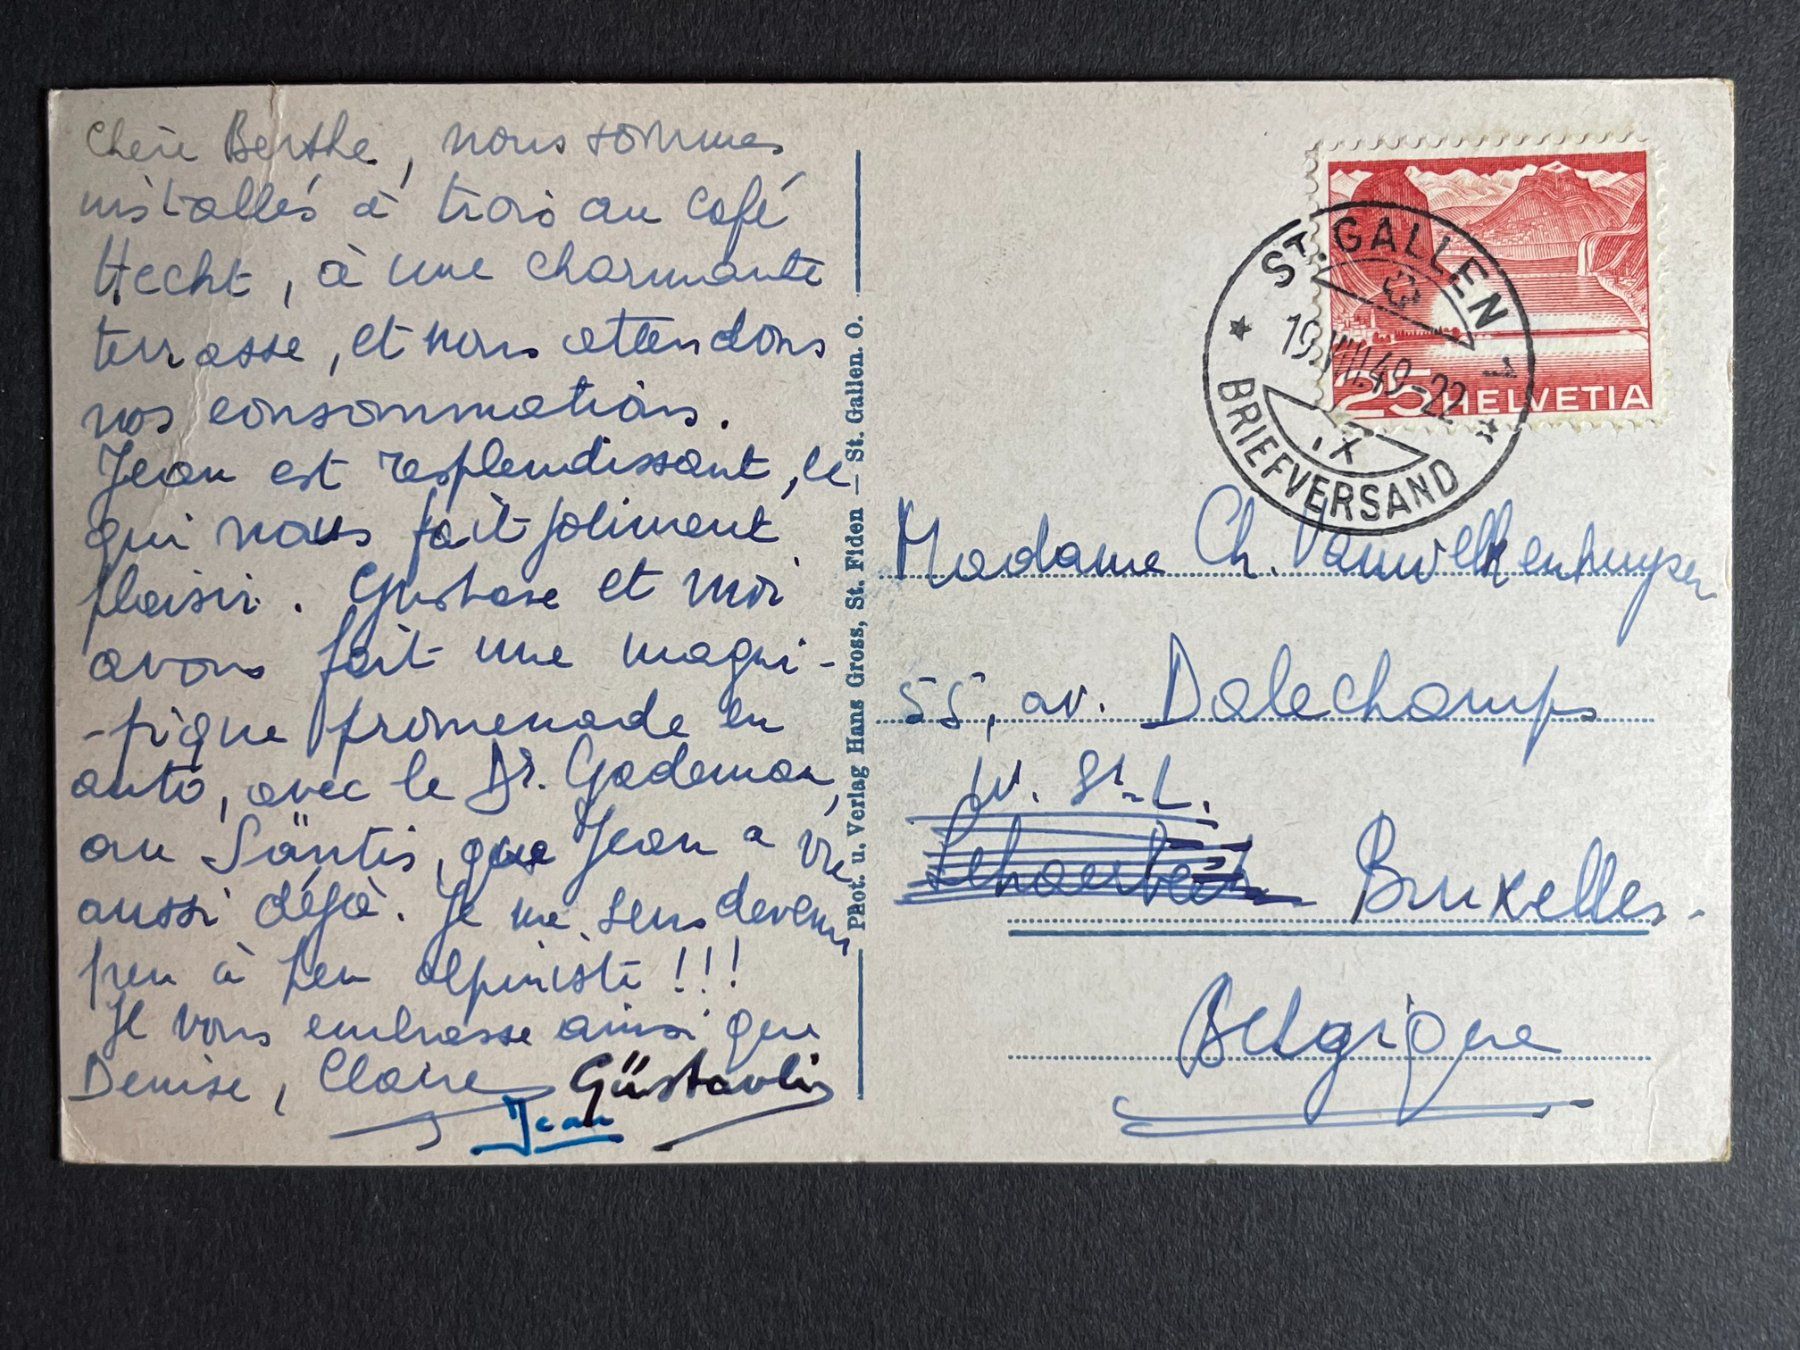 Chère Berthe, nous sommes
installés à trois au café
Hecht, à une charmante
terrasse, et nous attendons
nos consommations.
Jean est resplendissant, ce
qui nous fait joliment
plaisir. Gustave et moi
avons fait une magni-
-fique promenade en
auto, avec le Dr.
au Säntis, que Jean a vu
aussi déjà. Je me sens devenir
peu à peu alpiniste!!!
Je vous embrasse ainsi que
Denise, Claire Güstavli
Jean
Phot. u. Verlag Hans Gross, St. Fiden — St. Gallen. O.
ST. GALLEN 1
19.VIII.49-22
BRIEFVERSAND
25 HELVETIA
Madame Ch.
55, av. Dalechamps
W. St-L.
Bruxelles.
Belgique